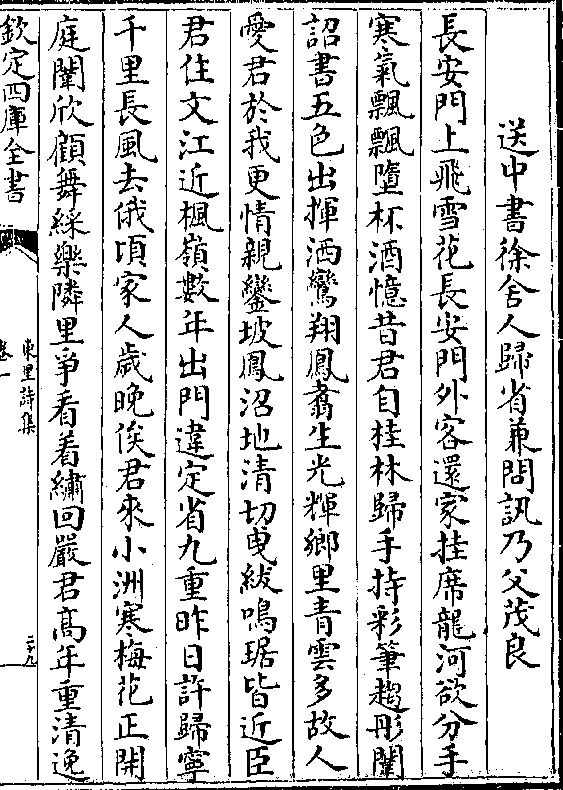 送中書徐舍人歸省兼問訊乃父茂良
長安門上飛雪花長安門外客還家挂席龍河欲分手
寒氣飄飄墮杯酒憶昔君自桂林歸手持彩筆趨彤闈
詔書五色出揮洒鸞翔鳳翥生光輝鄉里青雲多故人
愛君於我更情親鑾坡鳳沼地清切曳紱鳴琚皆近臣
君住文江近楓嶺數年出門違定省九重昨日許歸寧
千里長風去俄頃家人歲晚俟君來小洲寒梅花正開
庭闈欣顧舞綵樂隣里爭看着繡回嚴君高年重清逸
欽定四庫全書
東里詩集
卷一
二十九